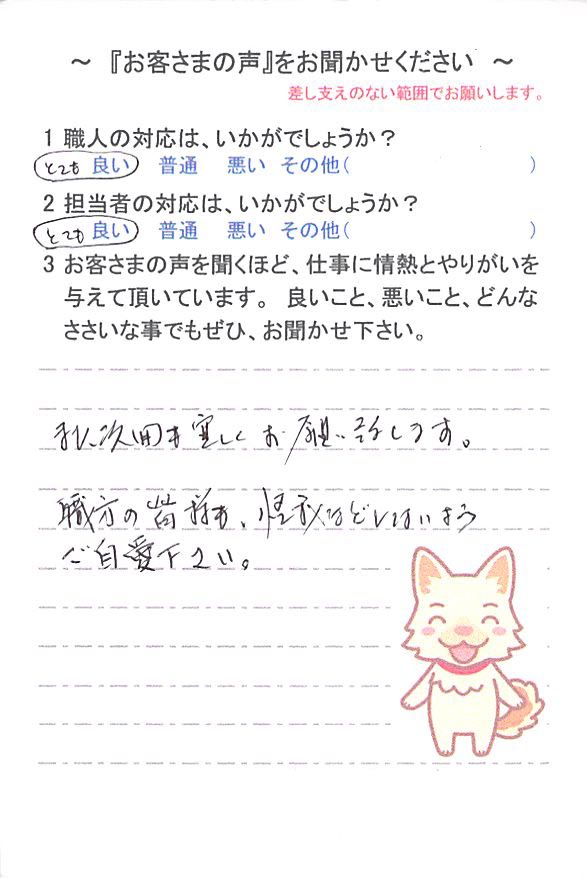 ～ 『お客さまの声』をお聞かせください ～
差し支えのない範囲でお願いします。
1 職人の対応は、いかがでしょうか？
とても 良い 普通 悪い その他( )
2 担当者の対応は、いかがでしょうか？
とても 良い 普通 悪い その他( )
3 お客さまの声を聞くほど、仕事に情熱とやりがいを
与えて頂いています。 良いこと、悪いこと、どんな
ささいな事でもぜひ、お聞かせ下さい。
また、次回も宜しくお願い致します。
職方の皆様も、怪我などしないよう
ご自愛下さい。